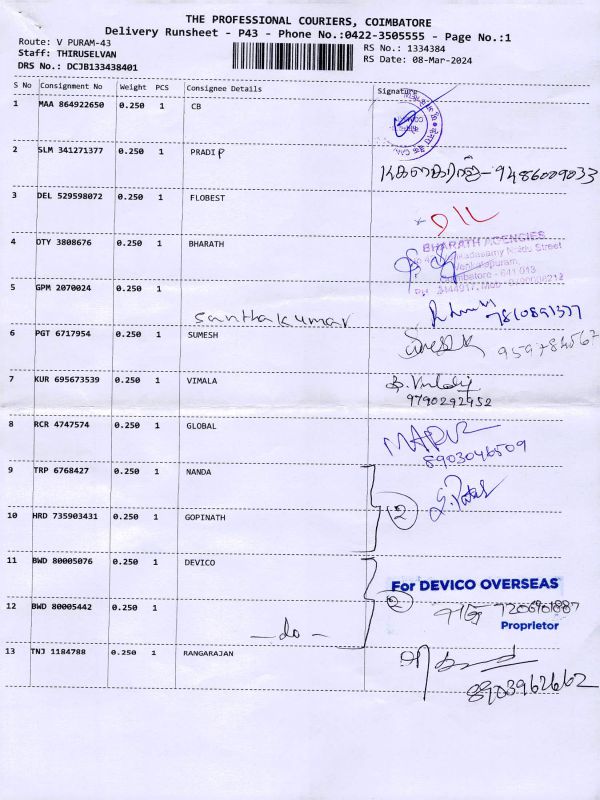 THE PROFESSIONAL COURIERS, COIMBATORE
Delivery Runsheet - P43 - Phone No.:0422-3505555 - Page No.:1
Route: V PURAM-43
RS No.: 1334384
Staff: THIRUSELVAN
RS Date: 08-Mar-2024
DRS No.: DCJB133438401
S No Consignment No Weight PCS Consignee Details Signature
1 MAA 864922650 0.250 1 CB
2 SLM 341271377 0.250 1 PRADIP
9486009033
3 DEL 529598072 0.250 1 FLOBEST
4 OTY 3808676 0.250 1 BHARATH
BHARATH AGENCIES
Street
Venkatapuram,
Coimbatore - 641 013
5 GPM 2070024 0.250 1
Santhakumar 7810891377
6 PGT 6717954 0.250 1 SUMESH
7 KUR 695673539 0.250 1 VIMALA
9790292952
8 RCR 4747574 0.250 1 GLOBAL
8903046509
9 TRP 6768427 0.250 1 NANDA
2
10 HRD 735903431 0.250 1 GOPINATH
11 BWD 80005076 0.250 1 DEVICO
For DEVICO OVERSEAS
2
12 BWD 80005442 0.250 1
- do - 
Proprietor
13 TNJ 1184788 0.250 1 RANGARAJAN
8903962662